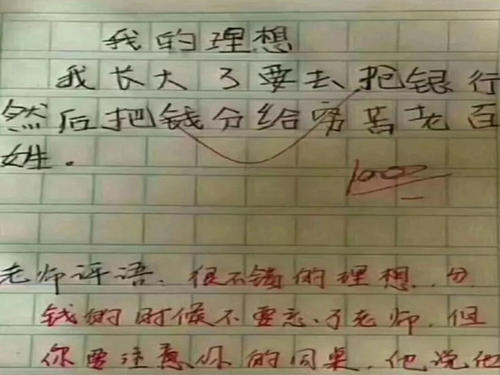 我的理想
我长大了要去抢银行
然后把钱分给穷苦老百
姓.
100
老师评语.很不错的理想..分
钱的时候不要忘了老师.但
你要注意你的同桌,他说他